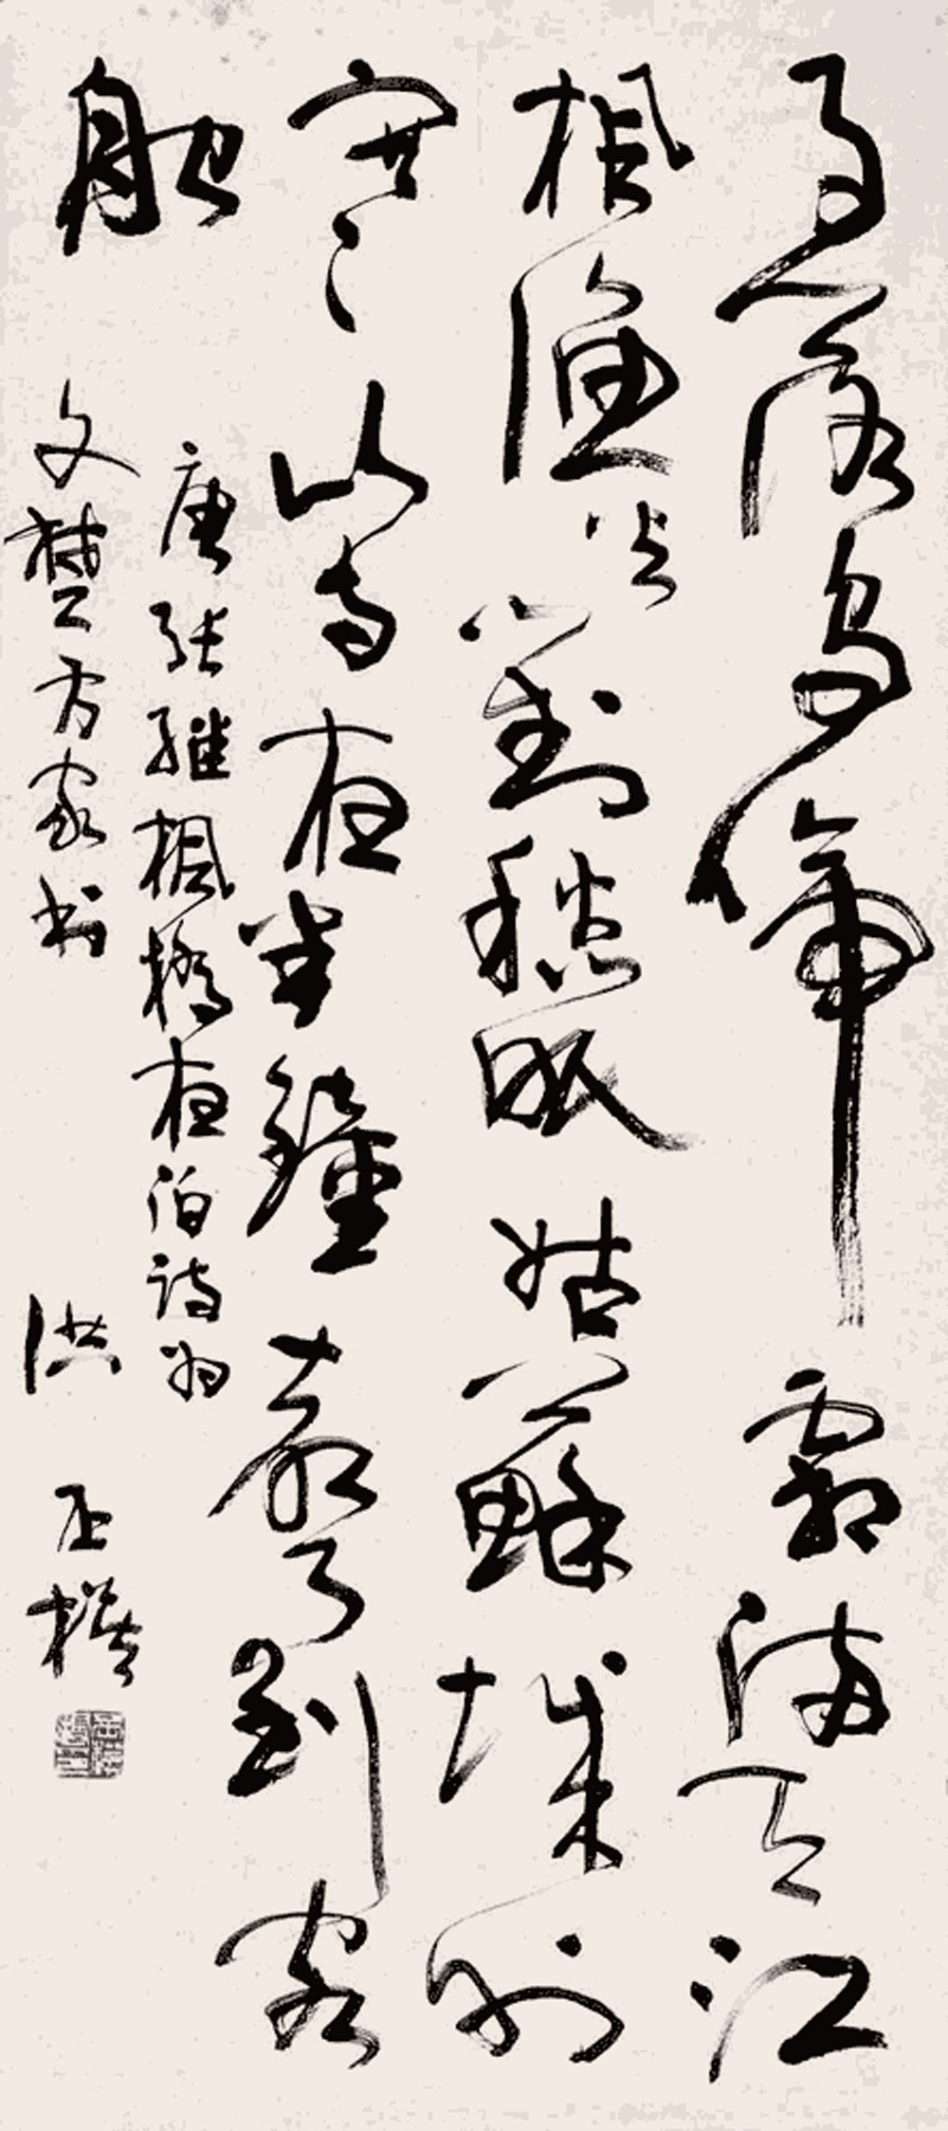 月落烏啼霜滿天江
楓漁火對愁眠姑蘇城外
寒山寺夜半鐘聲到客
船
唐張繼楓橋夜泊詩為
文楚方家书 洪丕模